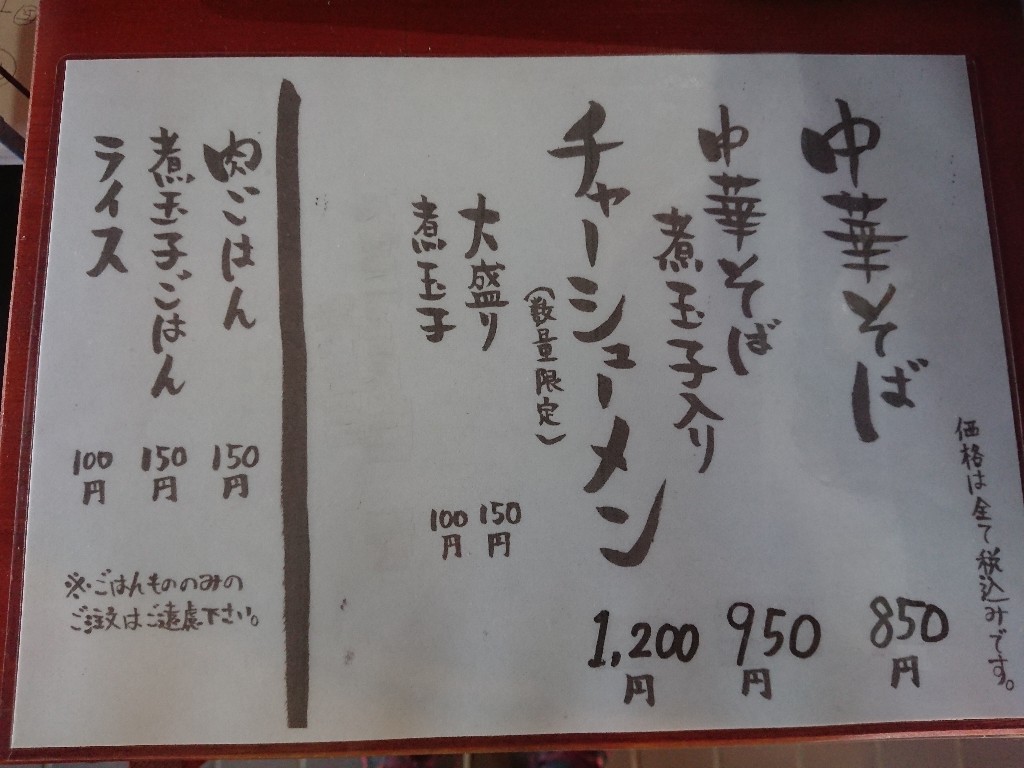 価格は全て税込みです。
中華そば
850円
中華そば
煮玉子入り
950円
チャーシューメン
(数量限定)
1,200円
大盛り
150円
煮玉子
100円
肉ごはん
150円
煮玉子ごはん
150円
ライス
100円
※ごはんもののみの
ご注文はご遠慮下さい。